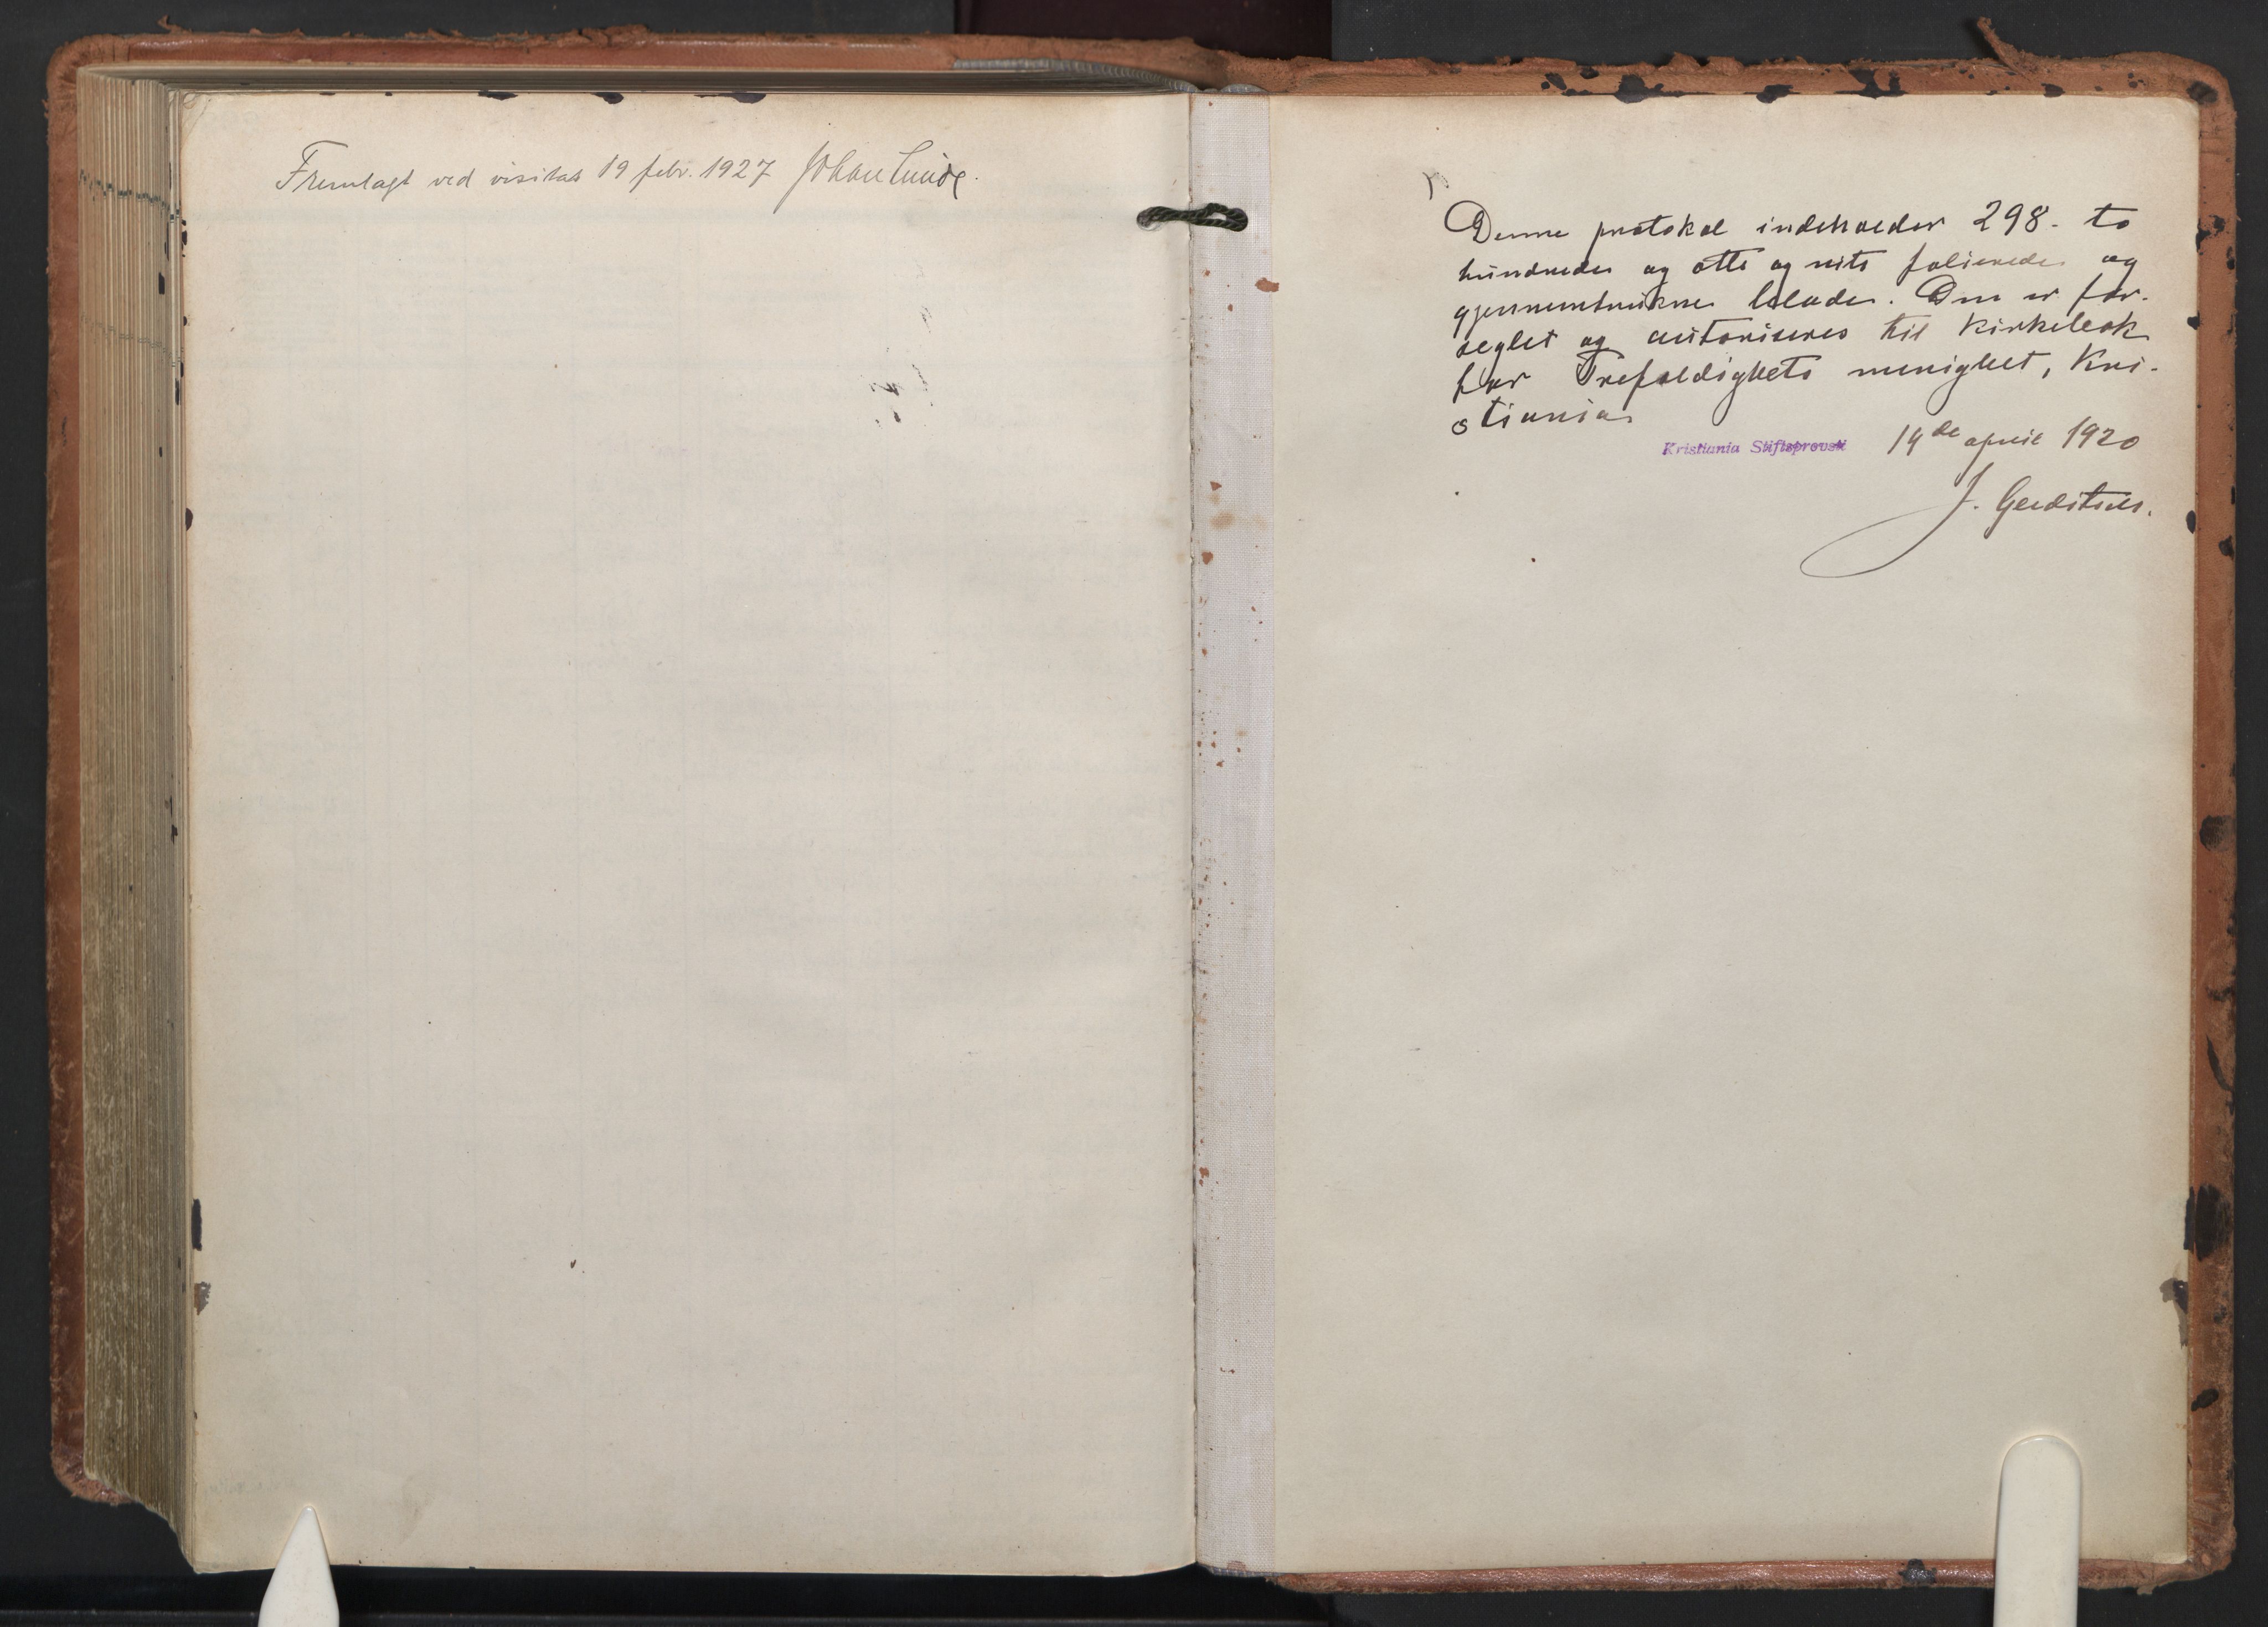 Fremlagt ved visitas 19 febr. 1927 Johan Lunde.
Denne protokol indeholder 298 - to
hundrede og otte og niti folierede og
gjennemtrukne blade. Den er for-
seglet og autoriseres til kirkebok
for Trefoldighets menighet, Kri-
stiania
Kristiania Stiftsprovsti 14de april 1920
J. Gerdstsen.